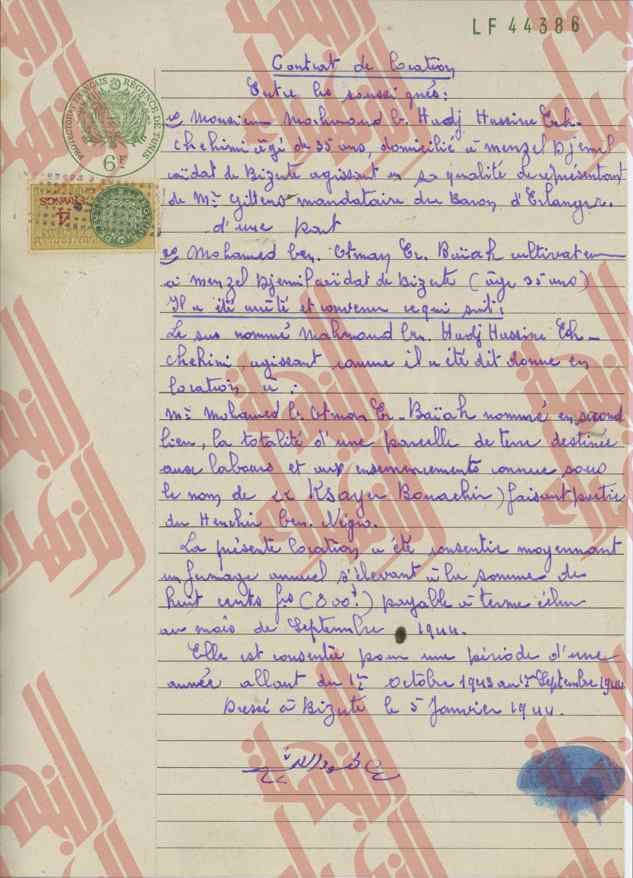 LF 44386
Contrat de location
Entre les soussignés:
1º Monsieur Mahmoud b. Hadj Hassine Ech-
Chehimi âgé de 35 ans, domicilié à Menzel Djemil
caïdat de Bizerte agissant en sa qualité de représentant
de Mr. Gittens mandataire du Baron d'Erlanger.
d'une part
2º Mohamed ben Otman El Baïah cultivateur
à Menzel Djemil caïdat de Bizerte (âge 35 ans)
Il a été arrêté et convenu ce qui suit:
Le sus nommé Mahmoud ben Hadj Hassine Ech-
Chehimi, agissant comme il a été dit donne en
location à:
Mr. Mohamed b. Otman El-Baïah nommé en second
lieu, la totalité d'une parcelle de terre destinée
aux labours et aux ensemencements connue sous
le nom de Ksayer Bouachir) faisant partie
du Henchir Ben Négro.
La présente location a été consentie moyennant
un fermage annuel s'élevant à la somme de
huit cents frs (800 f) payable à terme échu
au mois de Septembre 1944.
Elle est consentie pour une période d'une
année allant du 1er Octobre 1943 au 1er Septembre 1944
Dressé à Bizerte le 5 Janvier 1944.
PROTECTORAT FRANÇAIS RÉGENCE DE TUNIS
6 Fcs
4
FRANCS